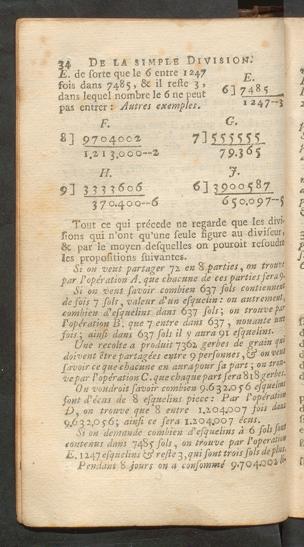 34 DE LA SIMPLE DIVISION.
E. de sorte que le 6 entre 1247
fois dans 7485, & il reste 3,
dans lequel nombre le 6 ne peut
pas entrer : Autres exemples.
E.
6] 7485
1247--3
F.
8] 9704002
1.213.000--2
G.
7] 555555
79.365
H.
9] 3333606
370.400--6
J.
6] 3900587
650.097--5
Tout ce qui précede ne regarde que les divi-
sions qui n'ont qu'une seule figure au diviseur,
& par le moyen desquelles on pouroit resoudre
les propositions suivantes.
Si on veut partager 72 en 8 parties, on trouve
par l'opération A. que chacune de ces parties sera 9.
Si on veut savoir combien 637 sols contiennent
de fois 7 sols, valeur d'un esquelin : ou autrement,
combien d'esquelins dans 637 sols ; on trouve par
l'opération B. que 7 entre dans 637, nonante une
fois ; ainsi dans 637 sols il y aura 91 esquelins.
Une recolte a produit 7362 gerbes de grain qui
doivent être partagées entre 9 personnes, & on veut
savoir ce que chacune en aura pour sa part ; on trou-
ve par l'opération C. que chaque part sera 818 gerbes.
On voudroit savoir combien 9.632.056 esquelins
font d'écus de 8 esquelins piece : Par l'opération
D, on trouve que 8 entre 1.204.007 fois dans
9.632.056; ainsi ce sera 1.204.007 écus.
Si on demande combien d'esquelins à 6 sols sont
contenus dans 7485 sols, on trouve par l'operation
E. 1247 esquelins & reste 3, qui sont trois sols de plus.
Pendant 8 jours on a consommé 9.704.002 li-